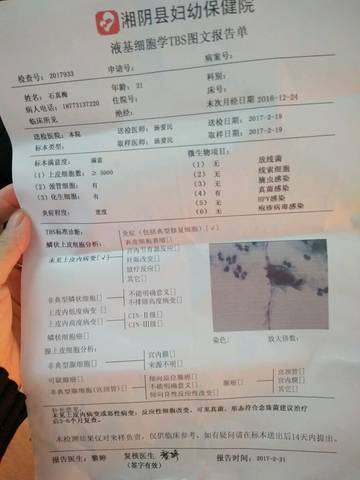 湘阴县妇幼保健院
液基细胞学TBS图文报告单
检查号: 2017933 申请号: 病案号:
姓名: 石真梅 年龄: 21 科别:
病人电话: 18773137220 住院号: 床号:
临床所见 绝经: 末次月经日期 2016-12-24
送检医院: 本院 送检医师: 汤爱民 送检日期: 2017-2-19
标本类型: 取样医师: 汤爱民 取样日期: 2017-2-19
标本满意度: 满意 微生物项目:
(1) 上皮细胞数: ≥ 5000 (1) 无 放线菌
(2) 颈管细胞: 有 (2) 无 线索细胞
(3) 化生细胞: 有 (3) 无 滴虫感染
(4) 有 真菌感染
(5) 无 HPV感染
炎症程度: 重度 (6) 无 疱疹病毒感染
TBS标准诊断: 炎症(包括典型修复细胞)[√]
鳞状上皮细胞分析: 表皮细胞萎缩[]
宫内节育器反应[]
未见上皮内病变[√] 妊娠改变[]
放疗反应[]
其它[]
非典型鳞状细胞[] 不能明确意义[]
不排除高度病变[]
上皮内低度病变[]
上皮内高度病变[] CIN-II级[]
CIN-III级[]
鳞状细胞癌[] 染色: 放大倍数:
腺上皮细胞分析:
非典型腺细胞[] 宫内膜[]
来源不明[]
可疑腺癌[] 倾向原位腺癌[] 腺癌[] 宫颈管[]
非典型腺细胞(宫颈管)[] 不能明确意义[] 宫内膜[]
倾向良性反应性改变[] 其它[]
补充意见:
未见上皮内病变或恶性病变; 反应性细胞改变。可见真菌, 形态符合念珠菌建议治疗
后3-6个月复查。
本检测结果仅对来样负责, 仅供临床参考, 如有疑问请在标本送出后14天内提出。
报告医生: 黎婷 复核医生 报告时间: 2017-2-21
(签字有效)